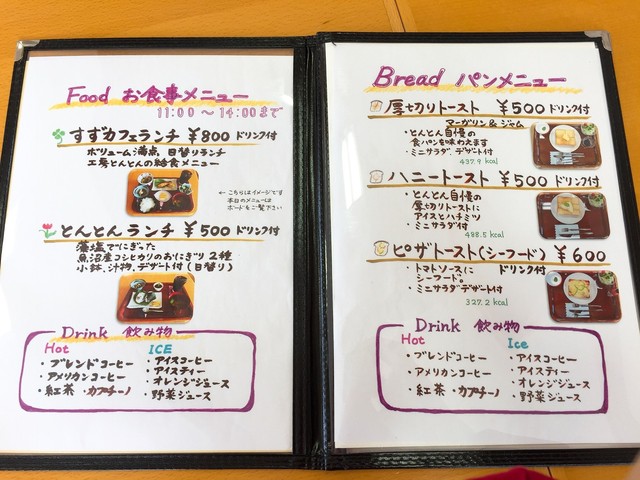 Food お食事メニュー
11:00 ～ 14:00まで
すずカフェランチ ¥800 ドリンク付
ボリューム満点、日替りランチ
工房とんとんの給食メニュー
← こちらはイメージです
本日のメニューは
ボードをご覧下さい
とんとんランチ ¥500 ドリンク付
藻塩でにぎった
魚沼産コシヒカリのおにぎり2種
小鉢、汁物、デザート付(日替り)
Drink 飲み物
Hot ICE
・ブレンドコーヒー ・アイスコーヒー
・アメリカンコーヒー ・アイスティー
・紅茶 ・カプチーノ ・オレンジジュース
・野菜ジュース
Bread パンメニュー
厚切りトースト ¥500 ドリンク付
マーガリン&ジャム
・とんとん自慢の
食パンを味わえます
・ミニサラダ、デザート付
437.9 kcal
ハニートースト ¥500 ドリンク付
・とんとん自慢の
厚切りトーストに
アイスとハチミツ
・ミニサラダ付
488.5 kcal
ピザトースト(シーフード) ¥600
ドリンク付
・トマトソースに
シーフード
・ミニサラダデザート付
327.2 kcal
Drink 飲み物
Hot Ice
・ブレンドコーヒー ・アイスコーヒー
・アメリカンコーヒー ・アイスティー
・紅茶 ・カプチーノ ・オレンジジュース
・野菜ジュース